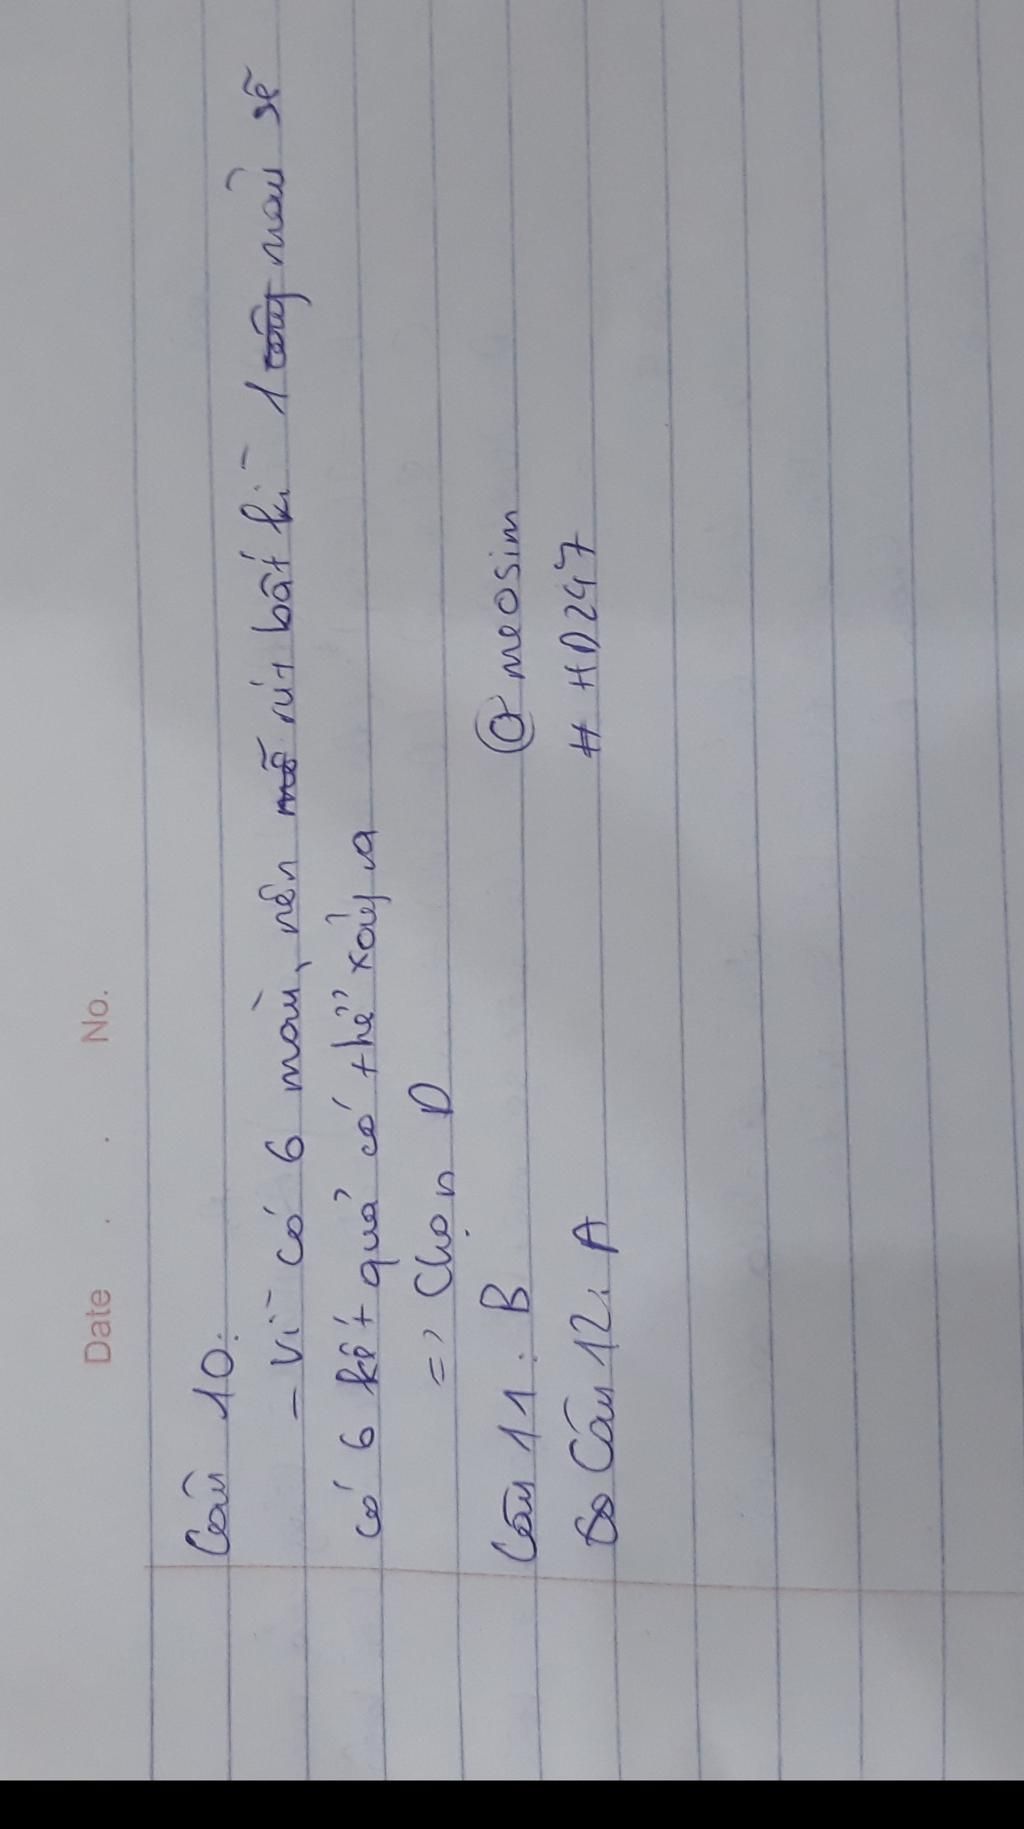 Date . . No.
Câu 10:
- Vì có 6 màu, nên rút bất kì 1 màu sẽ
có 6 kết quả có thể xảy ra
=> Chọn D
Câu 11: B @meosim
Câu 12: A # HD247